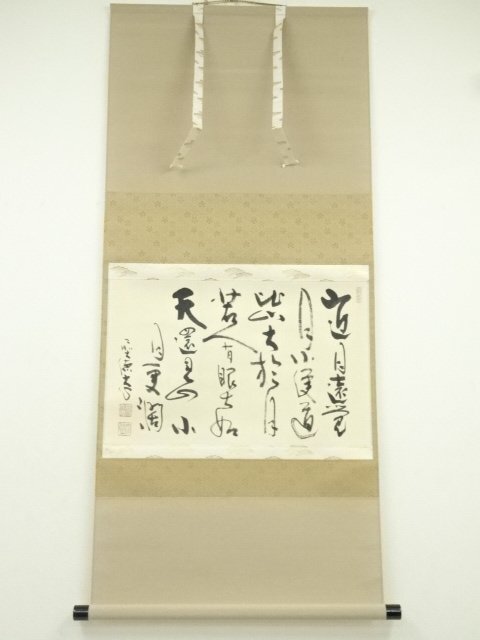 山近月遠覺
月小便道
此山大於月
若人有眼大如
天還見山小
月更闊